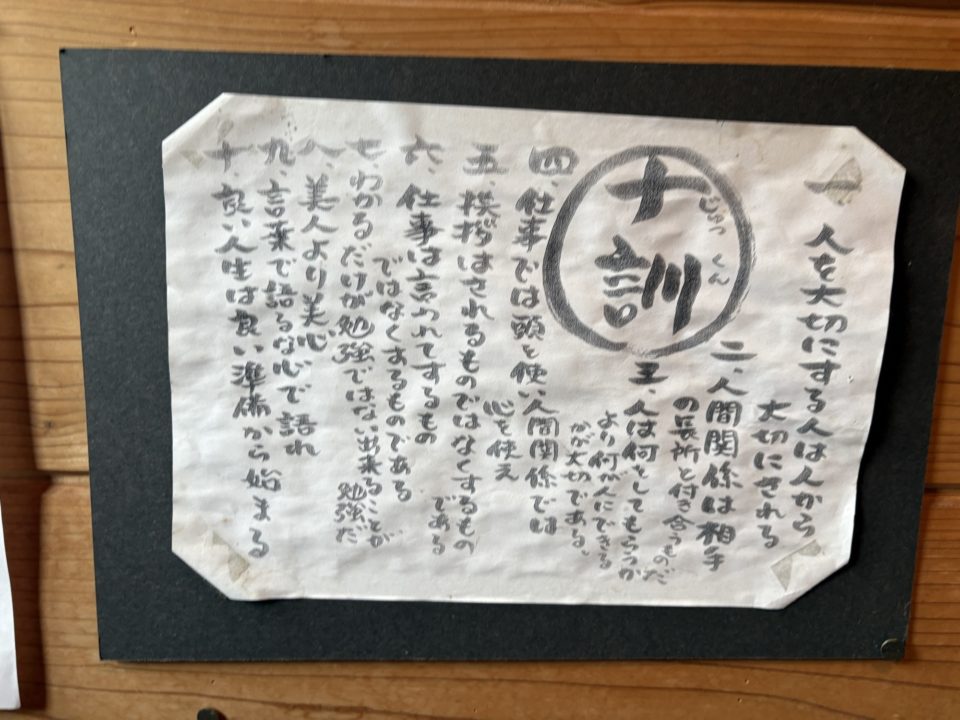 十訓
じゅっくん
一 人を大切にする人は人から
大切にされる
二、人間関係は相手
の長所と付き合うものだ
三、人は何をしてもらうか
より何が人にできる
かが大切である。
四、仕事では頭を使い人間関係では
心を使え
五、挨拶はされるものではなくするもの
である
六、仕事は言われてするもの
ではなくするものである
七、わかるだけが勉強ではない出来ることが
勉強だ
八、美人より美心
九、言葉で語るな心で語れ
十、良い人生は良い準備から始まる